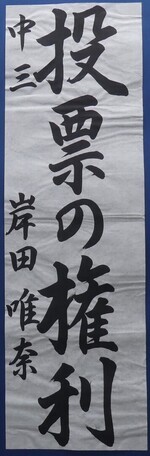 投票の権利
中三 岸田唯奈